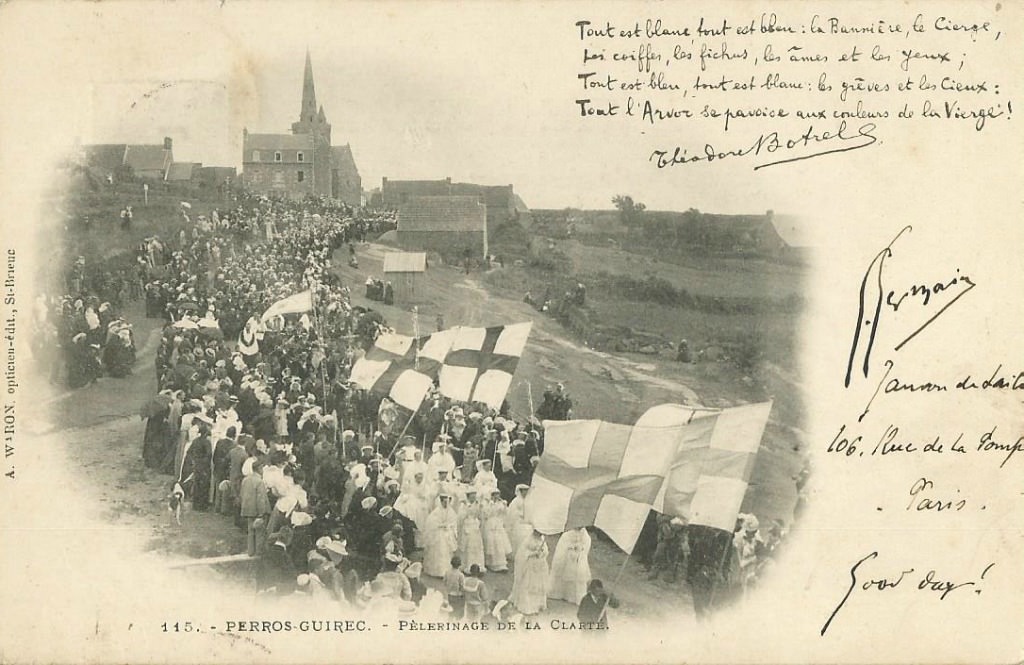 Tout est blanc, tout est bleu : la Bannière, le Cierge,
Les coiffes, les fichus, les âmes et les yeux ;
Tout est bleu, tout est blanc : les grèves et les Cieux :
Tout l'Arvor se pavoise aux couleurs de la Vierge !
Théodore Botrel
Germain
106. Rue de la Pomp
Paris.
Good day!
A. WARON. opticien-édit., St-Brieuc
115. - PERROS-GUIREC. - PÈLERINAGE DE LA CLARTÉ.